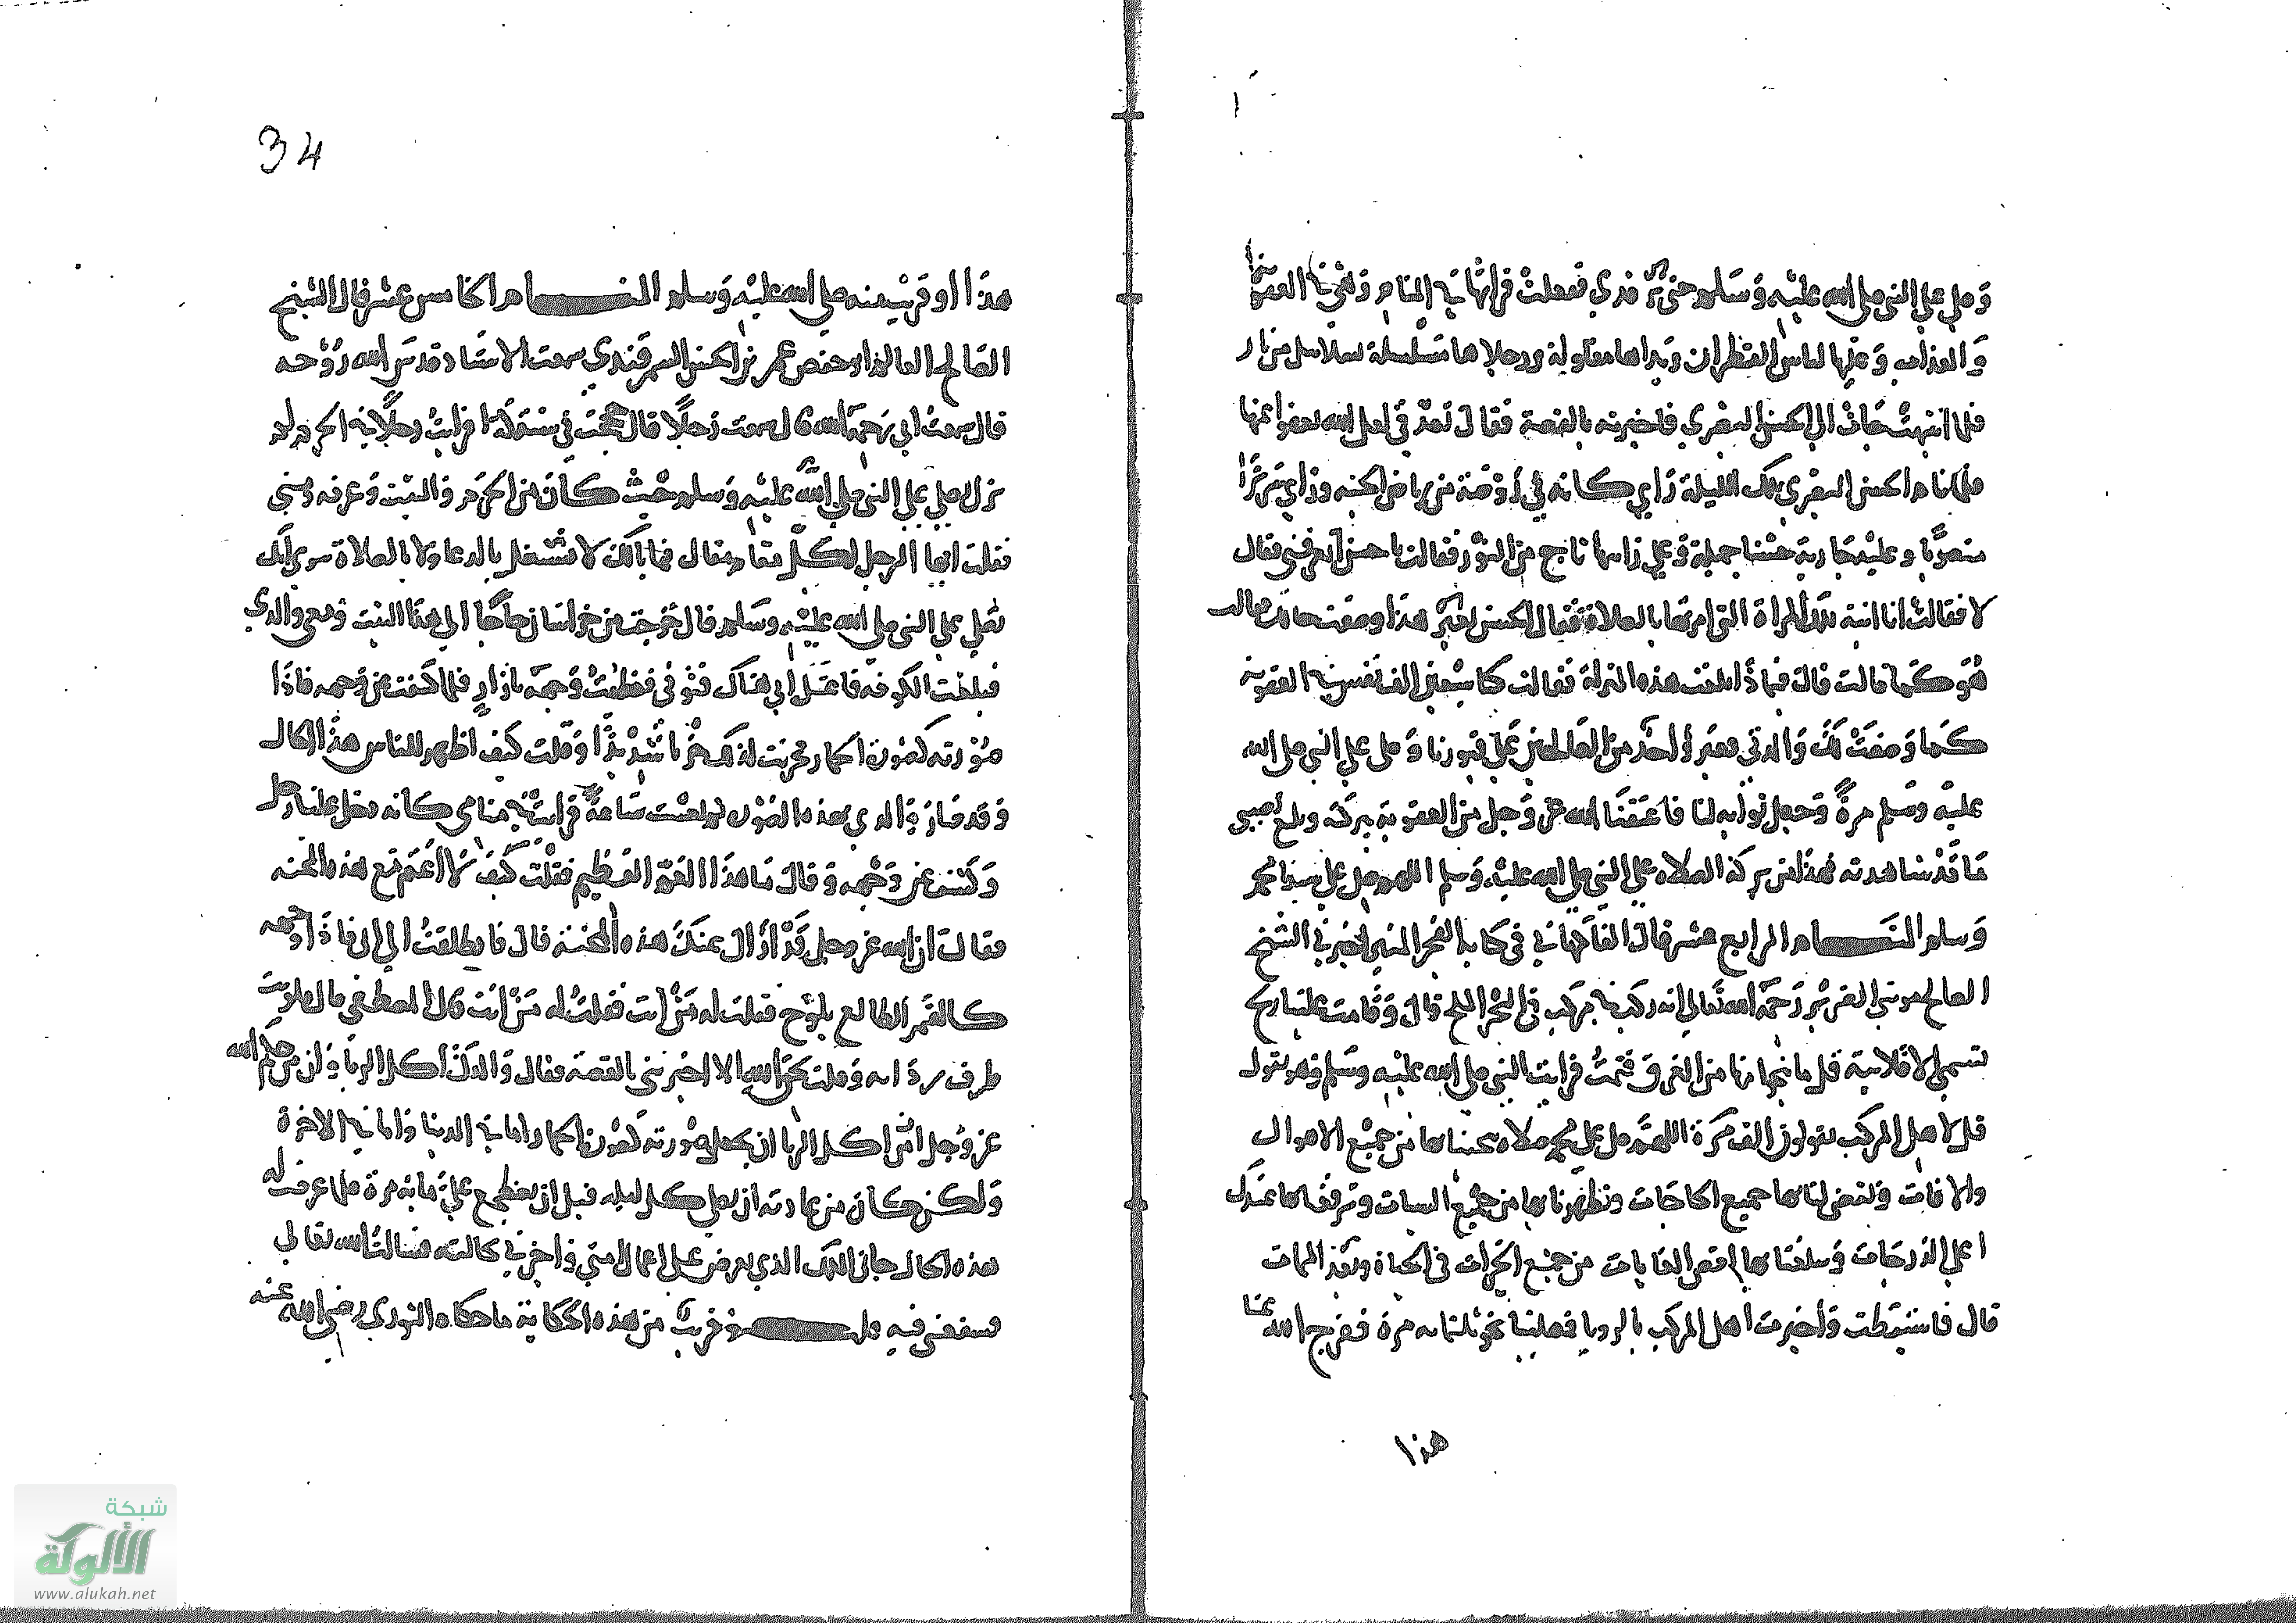 وصلي علي النبي صلي الله عليه وسلم حتي ترقدي ففعلت فراتها في المنام وهي في العقوبة
والعذاب وعليها لباس القطران ويداها مغلولة ورجلاها مسلسلة بسلاسل من نار
فلما انتبهت جات الي الحسن البصري فاخبرته بالقصة فقال تصدقي لعل الله يعفوا عنها
فلما نام الحسن البصري تلك الليلة راي كانه في روضة من رياض الجنه وراي سريرا
منصوبا وعليه جارية حسنا جميلة وعلي راسها تاج من النور فقالت يا حسن اتعرفني فقال
لا فقالت انا ابنة تلك المراة التي امرتها بالصلاة فقال الحسن لغير هذا وصفت حالك قالت
هو كما قالت قال فبماذا بلغت هذه المنزلة فقالت كنا سبعين الف نفس في العقوبة
كما وصفت لك والدتي فعبر احد من الصالحين علي قبورنا وصلي علي النبي صلي الله
عليه وسلم مرة وجعل ثوابه لنا فاعتقنا الله عز وجل من العقوبة ببركته وبلغ نصيبي
ما قد شاهدته فهذا من بركة الصلاه علي النبي صلي الله عليه وسلم اللهم صل علي سيدنا محمد
وسلم المنام الرابع عشر قال الفاكهاني في كتابه الفجر المنير اخبرني الشيخ
الصالح موسي الضرير رحمه الله تعالي انه ركب في مركب في البحر الملح قال وقامت علينا ريح
تسمي الاقلابية قل ما ينجوا منها من الغرق فنمت فرايت النبي صلي الله عليه وسلم وهو يقول
قل لاهل المركب يقولون الف مرة اللهم صل علي محمد صلاة تنجينا بها من جميع الاهوال
والافات وتقضي لنا بها جميع الحاجات وتطهرنا بها من جميع السيات وترفعنا بها عندك
اعلي الدرجات وتبلغنا بها اقصي الغايات من جميع الخيرات في الحياة وبعد الممات
قال فاستيقظت واخبرت اهل المركب بالرويا فصلينا نحو ثلثمايه مرة ففرج الله عنا
هذا
34
هذا او قريب منه صلي الله عليه وسلم المنام الخامس عشر قال الشيخ
الصالح العالم ابو حفص عمر بن الحسن السمرقندي سمعت الاستاد قدس الله روحه
قال سمعت ابي رحمه الله قال سمعت رجلا قال حججت في سنة فرايت رجلا في الحرم
يزل يصلي علي النبي صلي الله عليه وسلم حيث كان من الحرم والبيت وعرفه ومني
فقلت ايها الرجل لكل مقام مقال فما بالك لا تشتغل بالدعا ولا بالصلاة سوي انك
تصلي علي النبي صلي الله عليه وسلم قال خرجت من خراسان حاجا الي هذا البيت ومعي والدي
فبلغت الكوفه فاعتل ابي هناك فتوفي فغطيت وجهه بازار فلما كشفت عن وجهه فاذا
صورته كصورة الحمار فحزنت لذلك حزنا شديدا وقلت كيف اظهر للناس هذا الحال
وقد صار والدي بهذه الصورة ثم نعست ساعة فرايت في منامي كانه دخل علينا رجل
وكشف عن وجهه وقال ما هذا الغم العظيم فقلت كيف لا اغتم مع هذه المحنه
فقال ان الله عز وجل قد ازال عنك هذه المحنة قال فانطلقت الي ابي فاذا وجهه
كالقمر الطالع يلوح فقلت له من انت فقلت له من انت قال المصطفي قال فلزمت
طرف رداه وقلت بحق الله الا اخبرتني بالقصة فقال والدك اكل الربا وان من حكم الله
عز وجل ان من اكل الربا ان يحول صورته كصورة الحمار اما في الدنيا واما في الاخرة
ولكن كان من عادته ان يصلي كل ليله قبل ان يضطجع علي مايه مرة فلما عرضت له
هذه الحال جاني الملك الذي يعرض علي اعمال امتي واخبرني بحالته فسالت الله تعالي
فشفعني فيه قلت وقريب من هذه الحكاية ما حكاه الثوري رضي الله عنه
شبكة
الألوكة
www.alukah.net